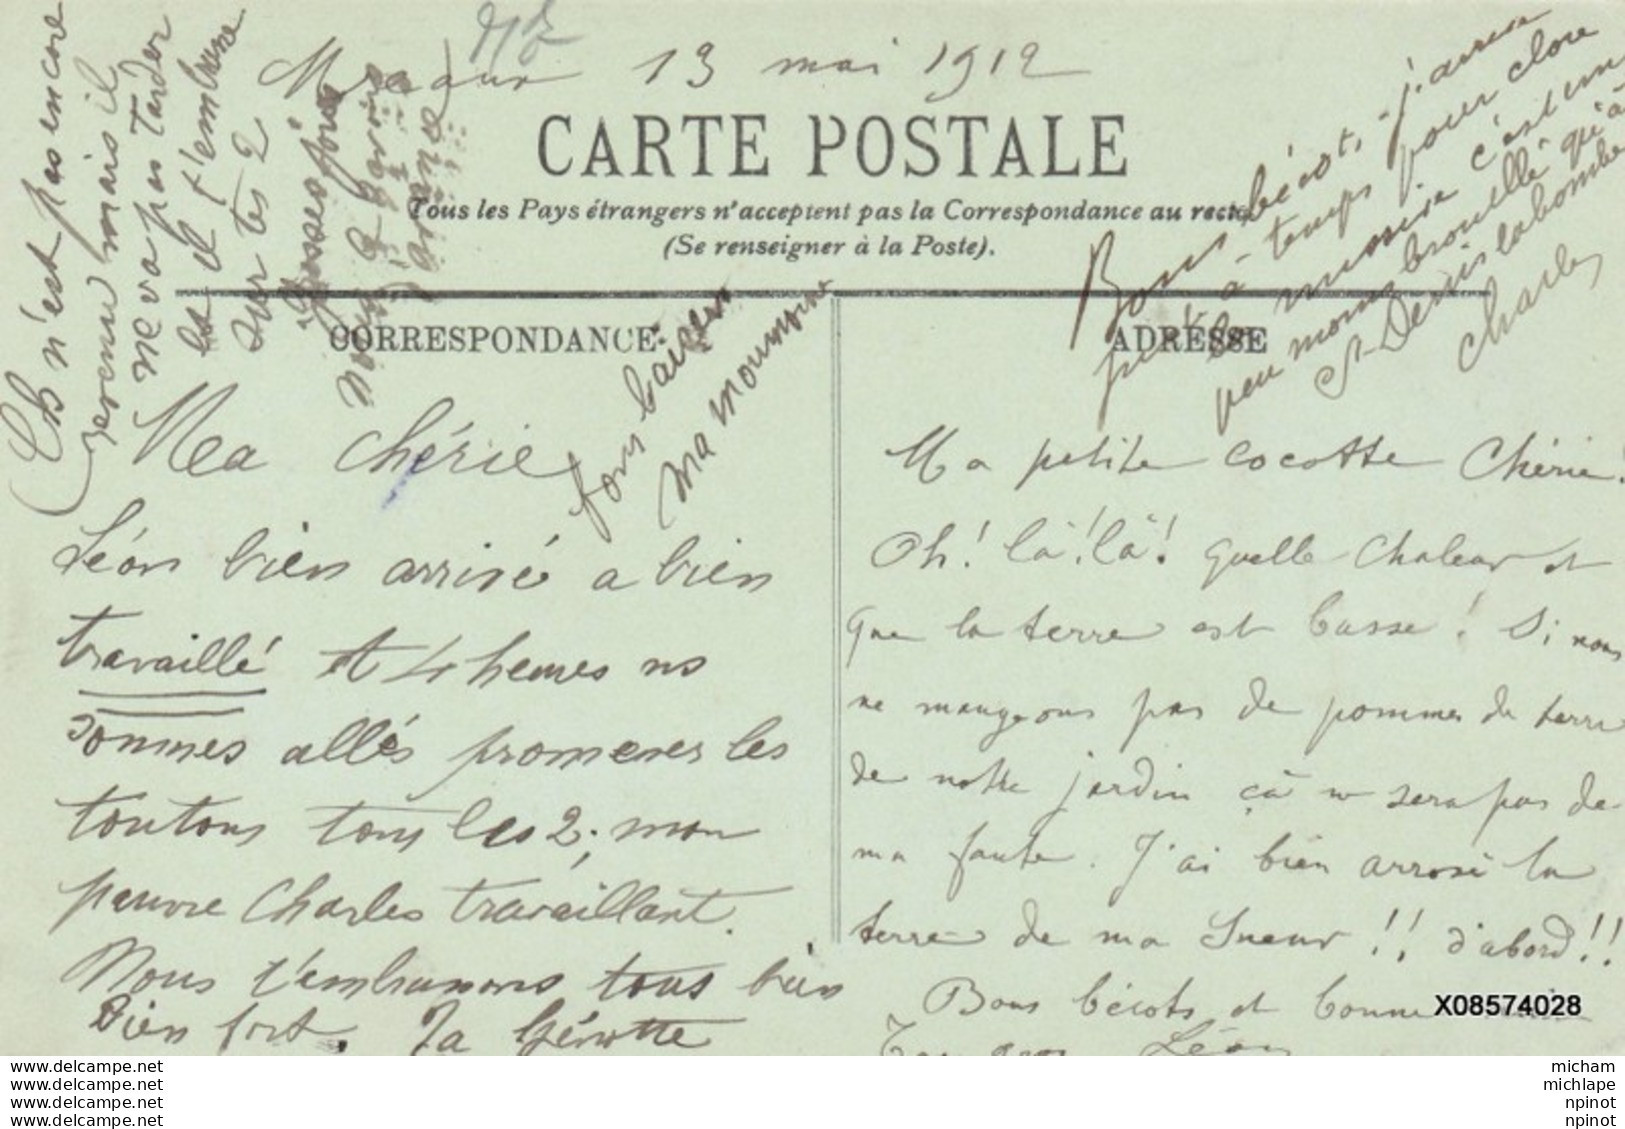 13 mai 1912
CARTE POSTALE
Tous les Pays étrangers n'acceptent pas la Correspondance au recto
(Se renseigner à la Poste).
CORRESPONDANCE
ADRESSE
Ch n'est pas encore
revenu mais il
ne va pas tarder
et il t'embrasse
sur tes 2
grosses joues
Ma chérie
Léon bien arrivé a bien
travaillé et 4 heures ns
sommes allés promener les
toutous tous les 2; mon
pauvre Charles travaillant.
Nous t'embrassons tous bien
bien fort. Ta
bons baisers
ma moumoune
Bons bécots, j'arrive
juste à temps pour clore
la missive c'est un
peu moins brouillé qu'à
St Denis la bombe
Charles
Ma petite cocotte Chérie!
Oh! là! là! quelle chaleur et
que la terre est basse! Si nous
ne mangeons pas de pommes de terre
de notre jardin çà ne sera pas de
ma faute. J'ai bien arrosé la
terre de ma sueur!! d'abord!!
Bons bécots et bonne
Ton gros Léon
X08574028
www.delcampe.net
www.delcampe.net
www.delcampe.net
www.delcampe.net
micham
michlape
npinot
npinot